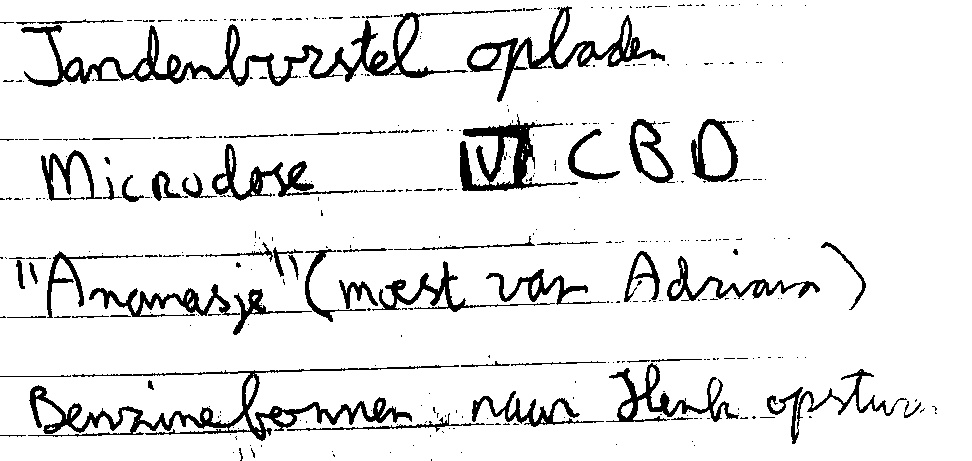 Tandenborstel opladen
Microdose V CBD
"Ananasje" (moest van Adriana)
Benzinebonnen naar Henk opsturen